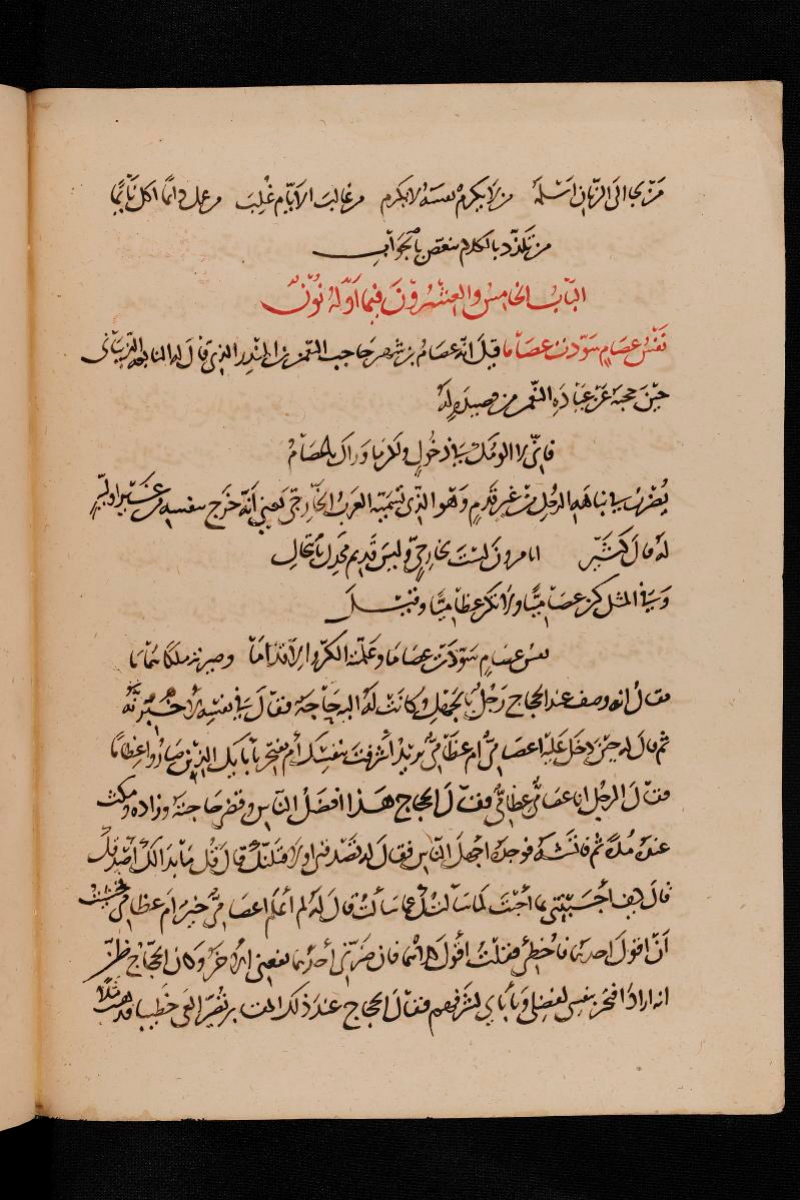 من نجا الى الزمان اسلمه من لا يكرم نفسه لا يكرم من غالب الايام غلب من عمل دائما اكل نائما
من تلذذ بالكلام تنغص بالجواب
الباب الخامس والعشرون فيما اوله نون
نفس عصام سودت عصاما قيل انه عصام بن شهبر حاجب النعمن بن المنذر الذي قال له النابغة الذبياني
حين حجبه عن عيادة النعمن من قصيدة له
فاني لا الومك في دخول ولكن ما وراك يا عصام
يضرب في نباهة الرجل من غير قديم وهو الذي تسميه العرب الخارجي يعني انه خرج بنفسه من غير اولية
له قال كثير امروان لست بخارجي وليس قديم مجدك بانتحال
وفي المثل كن عصاميا ولا تكن عظاميا وقيل
نفس عصام سودت عصاما وعلمته الكر والاقداما وصيرته ملكا هماما
يقال انه وصف عند الحجاج رجل بالجهل وكانت له اليه حاجة فقال في نفسه لاخبرنه
ثم قال له حين دخل عليه اعصامي ام عظامي يريد اشرفت بنفسك ام تفتخر بابايك الذين صاروا عظاما
فقال الرجل انا عصامي عظامي فقال الحجاج هذا افضل الناس وقضى حاجته وزاده ومكث
عنده مدة ثم فاتشه فوجده اجهل الناس فقال له تصدقني او لاقتلنك قال قل ما بدا لك اصدقك
قال كيف اجبتني بما اجبت لما سالتك عما سالت قال له لم اعلم اعصامي خير ام عظامي فخشيت
ان اقول احدهما فاخطئ فقلت اقول كلاهما فان ضرني احدهما نفعني الاخر وكان الحجاج ظن
انه اراد افخر بنفسي لفضلي وبابائي لشرفهم فقال الحجاج عند ذلك المقادير تصير العي خطيبا فذهبت مثلا